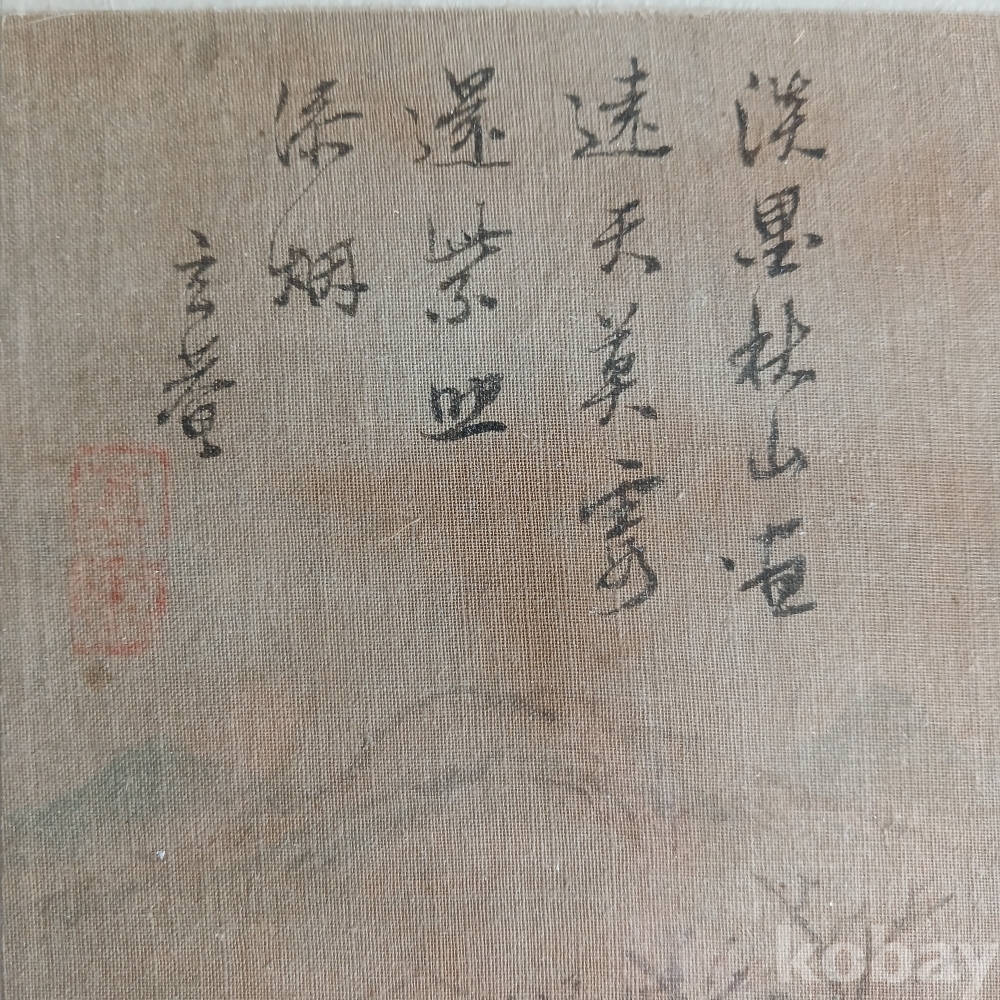 淡墨秋山畫
遠天莫霞
還紫照
添烟
玄
kobay